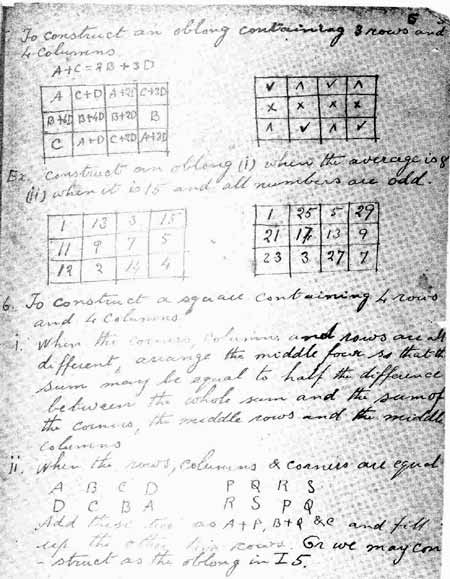 5
To construct an oblong containing 3 rows and
4 columns
A+C = 2B + 3D
A C+D A+2D C+3D
B+4D B+2D B
C A+D C+2D A+3D
✓ ∧ ✓ ∧
x x x x
∧ ✓ ∧ ✓
Ex. Construct an oblong (i) when the average is 8
(ii) when it is 15 and all numbers are odd.
1 13 3 15
11 9 7 5
12 2 14 4
1 25 5 29
21 17 13 9
23 3 27 7
6. To construct a square containing 4 rows
and 4 columns
i. When the corners, columns and rows are all
different, arrange the middle four so that the
sum may be equal to half the difference
between the whole sum and the sum of
the corners, the middle rows and the middle
columns
ii. When the rows, columns & corners are equal
A B C D P Q R S
D C B A R S P Q
Add these two as A+P, B+Q &c and fill
up the other rows. Or we may con
-struct as the oblong in I 5.